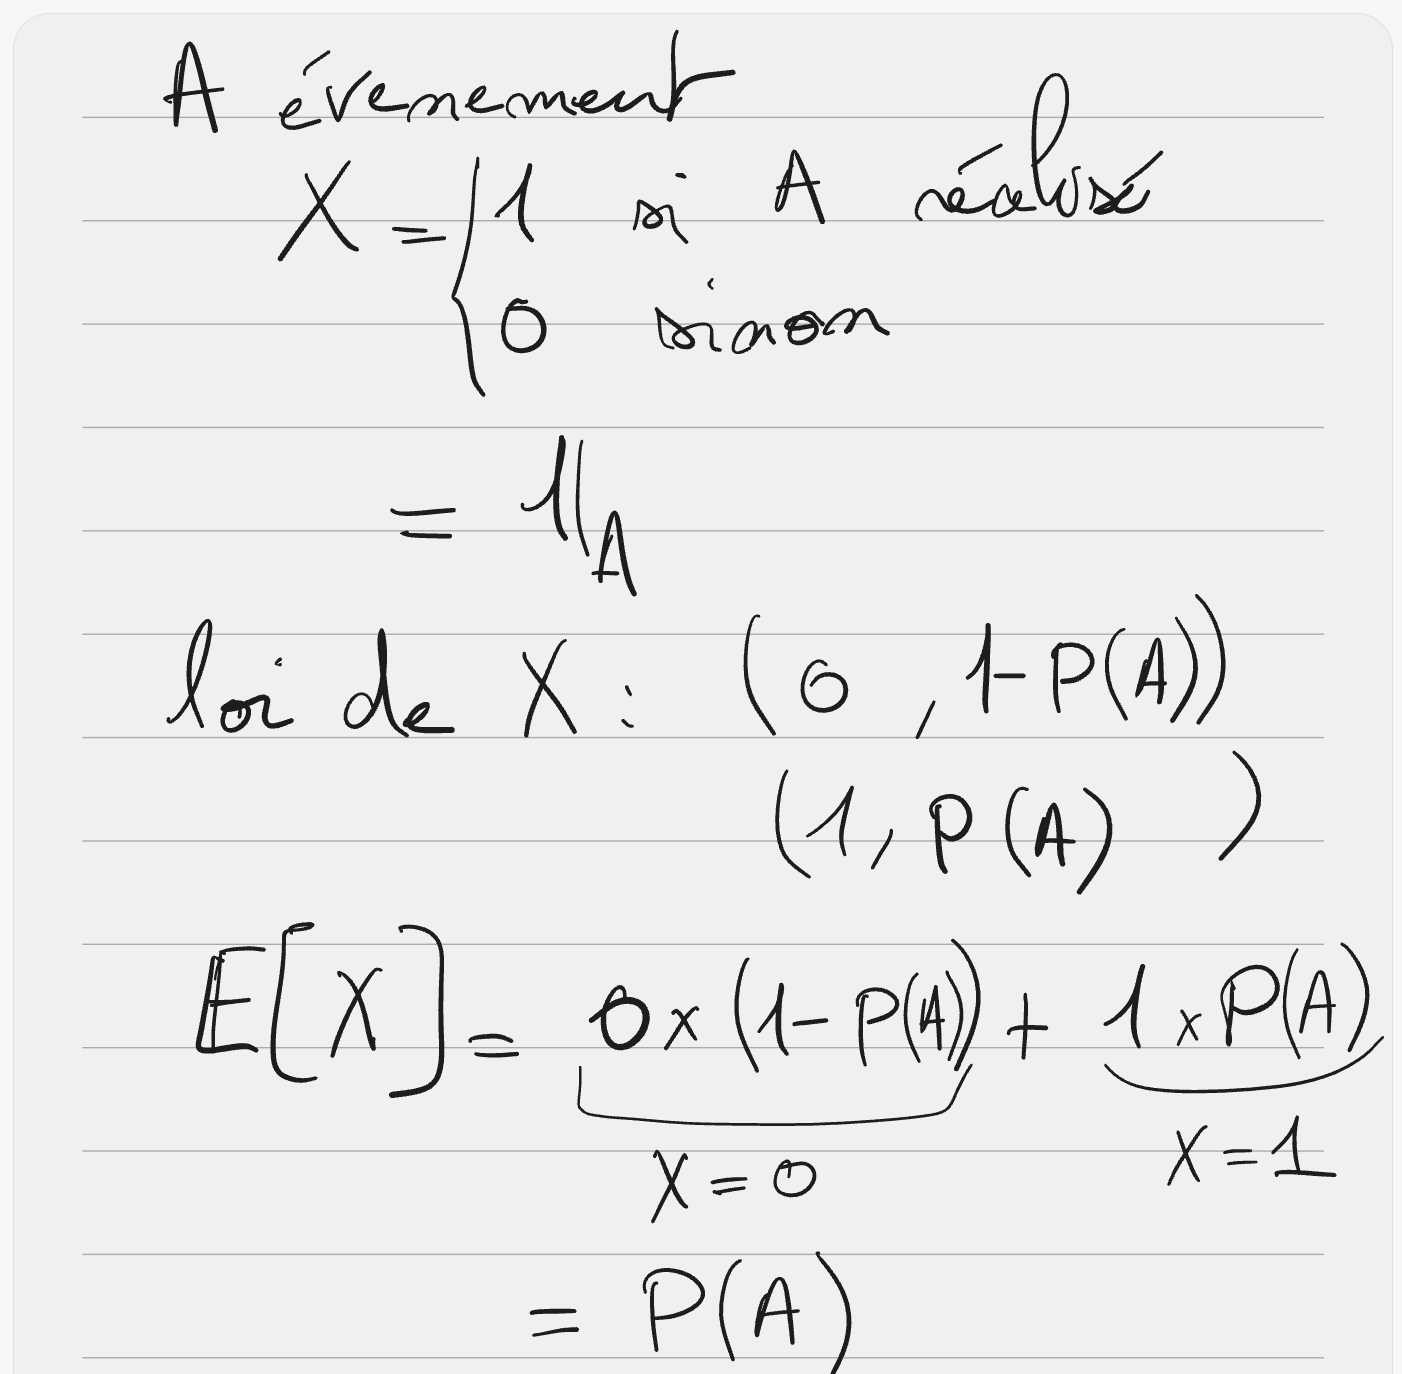 A évenement
X = { 1 si A réalisé
0 sinon
= 𝟙_A
loi de X : (0, 1-P(A))
(1, P(A) )
E[X] = 0 × (1-P(A)) + 1 × P(A)
X = 0 X = 1
= P(A)